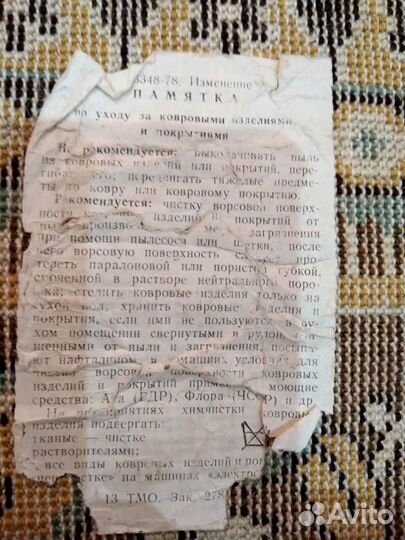 3348-78. Изменение
ПАМЯТКА
по уходу за ковровыми изделиями
и покрытиями
Не рекомендуется: выколачивать пыль
из ковровых изделий или покрытий, перегибать
его; передвигать тяжелые предметы
по ковру или ковровому покрытию.
Рекомендуется: чистку ворсовой поверхности
изделий и покрытий от
загрязнения
при помощи пылесоса или щетки, после
чего ворсовую поверхность следует протереть
паралоновой или пористой губкой,
смоченной в растворе нейтрального порошка;
стелить ковровые изделия только на
сухой пол; хранить ковровые изделия и
покрытия, если ими не пользуются, в сухом
помещении свернутыми в рулон,
от пыли и загрязнения,
нафталином. В домашних условиях для
чистки ворсовой поверхности ковровых
изделий и покрытий применять моющие
средства: (ГДР), Флора (ЧССР) и др.
На предприятиях химчистки ковровые
изделия подвергать:
тканые — чистке
растворителями;
все виды ковровых изделий и
на машинах «электро
13 ТМО. Зак. 278
Avito